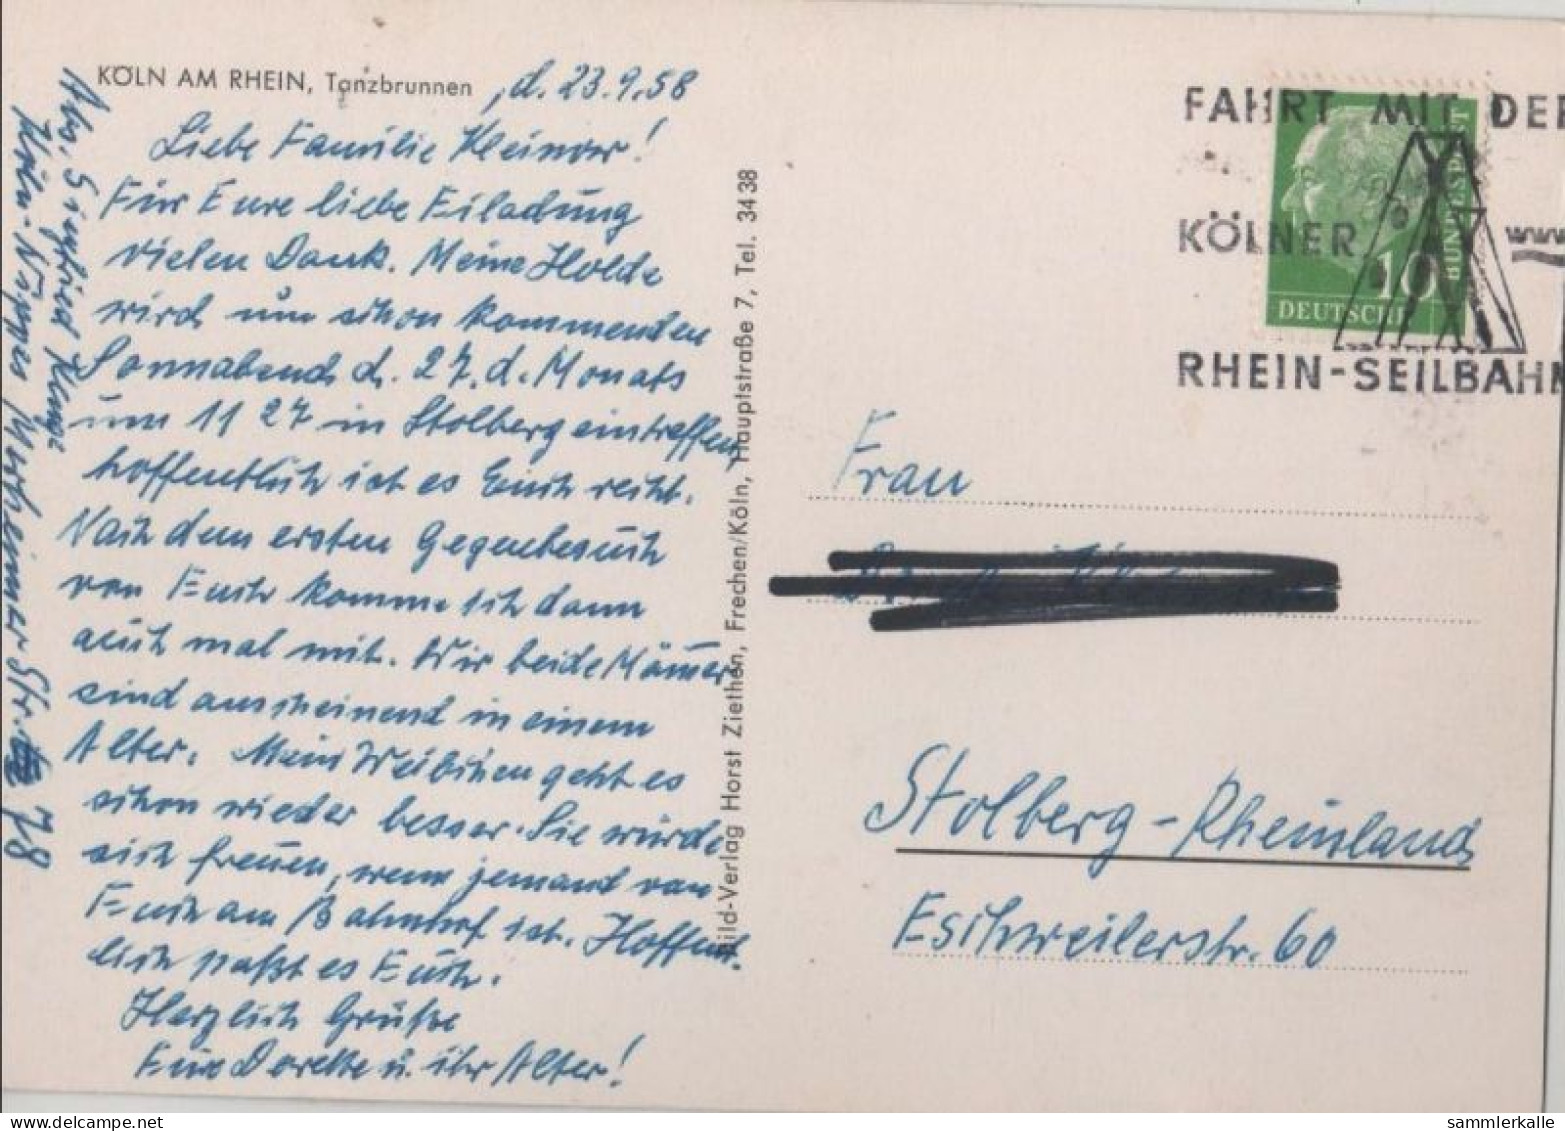 KÖLN AM RHEIN, Tanzbrunnen
, d. 23.9.58
Liebe Familie
Für Eure liebe Eiladung
vielen Dank. Meine Holde
wird um schon kommenden
Sonnabend d. 27. d. Monats
um 11 27 in Stolberg eintreffen,
hoffentlich ist es Euch recht.
Nach dem ersten Gegenbesuch
von Euch komme ich dann
auch mal mit. Wir beide Männer
sind anscheinend in einem
Alter. Mein Weibchen geht es
schon wieder besser. Sie würde
sich freuen, wenn jemand von
Euch am Bahnhof ist. Hoffent-
lich paßt es Euch.
Herzlich Grüße
Eure Dorette u. ihr Alter!
Abs. Siegfried
Köln-Nippes Merheimer Str. 78
Bild-Verlag Horst Ziethen, Frechen/Köln, Hauptstraße 7, Tel. 3438
FAHRT MIT DER
KÖLNER
RHEIN-SEILBAHN
DEUTSCHE
BUNDESPOST
10
Frau
Stolberg-Rheinland
Eschweilerstr. 60
sammlerkalle